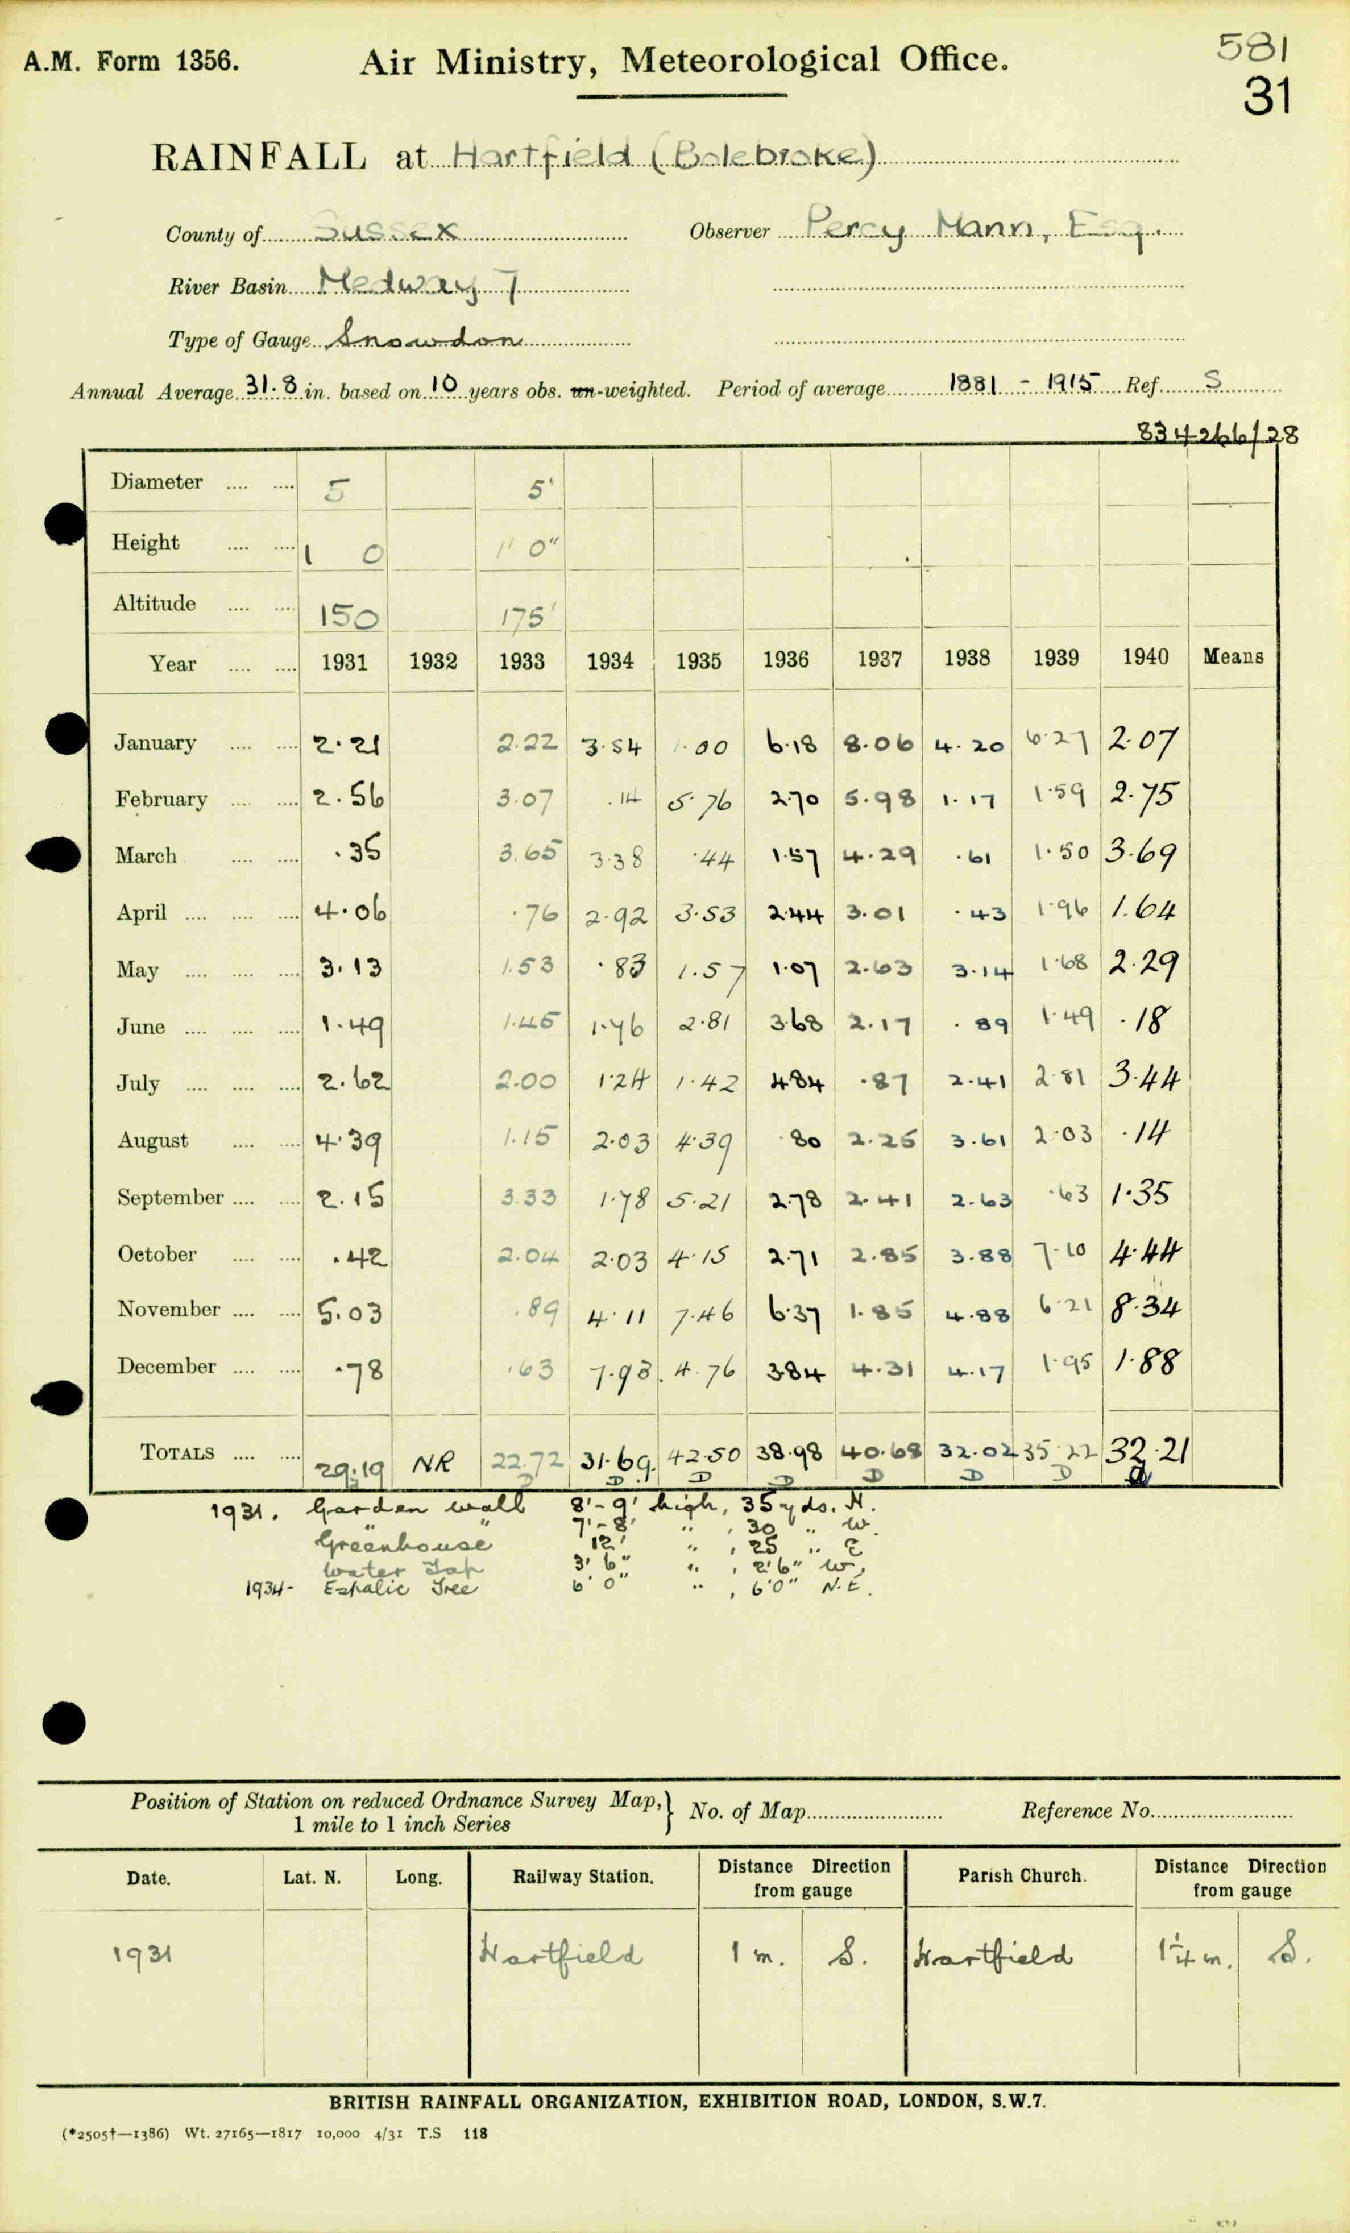 A.M. Form 1356.
Air Ministry, Meteorological Office.
581
31
RAINFALL at Hartfield (Bolebroke)
County of Sussex Observer Percy Mann, Esq.
River Basin Medway 7
Type of Gauge Snowdon
Annual Average 31.8 in. based on 10 years obs. un-weighted. Period of average 1881 - 1915 Ref. S
834266/28
Diameter 5 5'
Height 1 0 1' 0"
Altitude 150 175'
Year 1931 1932 1933 1934 1935 1936 1937 1938 1939 1940 Means
January 2.21 2.22 3.54 1.00 6.18 8.06 4.20 6.27 2.07
February 2.56 3.07 .14 5.76 2.70 5.98 1.17 1.59 2.75
March .35 3.65 3.38 .44 1.57 4.29 .61 1.50 3.69
April 4.06 .76 2.92 3.53 2.44 3.01 .43 1.96 1.64
May 3.13 1.53 .83 1.57 1.07 2.63 3.14 1.68 2.29
June 1.49 1.45 1.76 2.81 3.68 2.17 .89 1.49 .18
July 2.62 2.00 1.24 1.42 4.84 .87 2.41 2.81 3.44
August 4.39 1.15 2.03 4.39 .80 2.25 3.61 2.03 .14
September 2.15 3.33 1.78 5.21 2.78 2.41 2.63 .63 1.35
October .42 2.04 2.03 4.15 2.71 2.85 3.88 7.10 4.44
November 5.03 .89 4.11 7.46 6.37 1.85 4.88 6.21 8.34
December .78 .63 7.93 4.76 3.84 4.31 4.17 1.95 1.88
TOTALS 29.19 NR 22.72 31.69 42.50 38.98 40.68 32.02 35.22 32.21
D D D D D D D
1931. Garden wall 8'-9' high, 35 yds. N.
" " 7'-8' " , 30 " W.
Greenhouse 12' " , 25 " E
Water Tap 3' 6" " , 2'6" W,
1934- Espalic Tree 6' 0" " , 6'0" N.E.
Position of Station on reduced Ordnance Survey Map, } No. of Map Reference No.
1 mile to 1 inch Series
Date. Lat. N. Long. Railway Station. Distance Direction from gauge Parish Church. Distance Direction from gauge
1931 Hartfield 1 m. S. Hartfield 1¼ m. S.
BRITISH RAINFALL ORGANIZATION, EXHIBITION ROAD, LONDON, S.W.7.
(*2505†—1386) Wt. 27165—1817 10,000 4/31 T.S 118